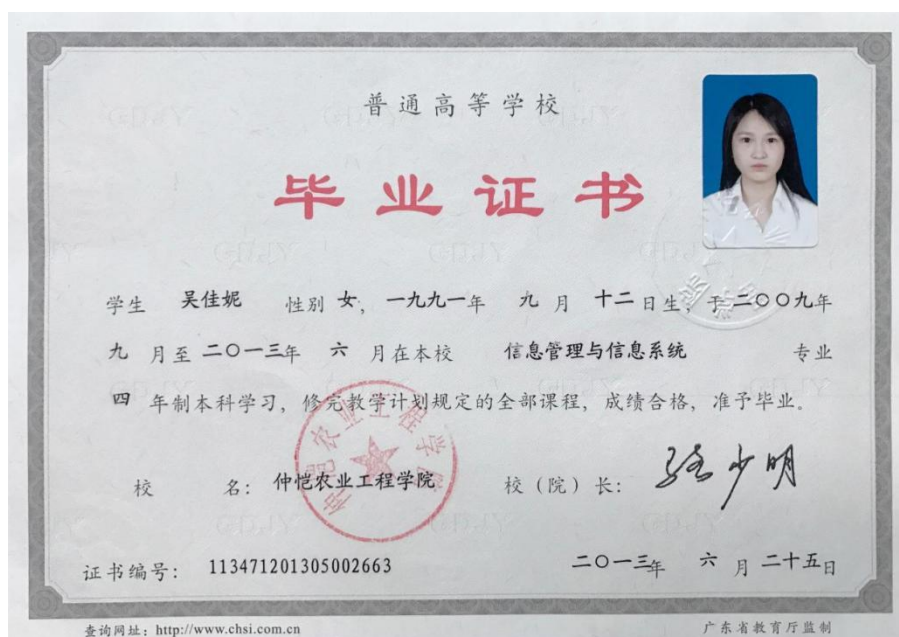 普通高等学校
毕业证书
学生 吴佳妮 性别 女，一九九一年 九 月 十二日生，于二〇〇九年
九 月至二〇一三年 六 月在本校 信息管理与信息系统 专业
四 年制本科学习，修完教学计划规定的全部课程，成绩合格，准予毕业。
校 名：仲恺农业工程学院 校（院）长：
仲恺农业工程学院
证书编号：113471201305002663 二〇一三年 六 月 二十五日
查询网址：http://www.chsi.com.cn 广东省教育厅监制